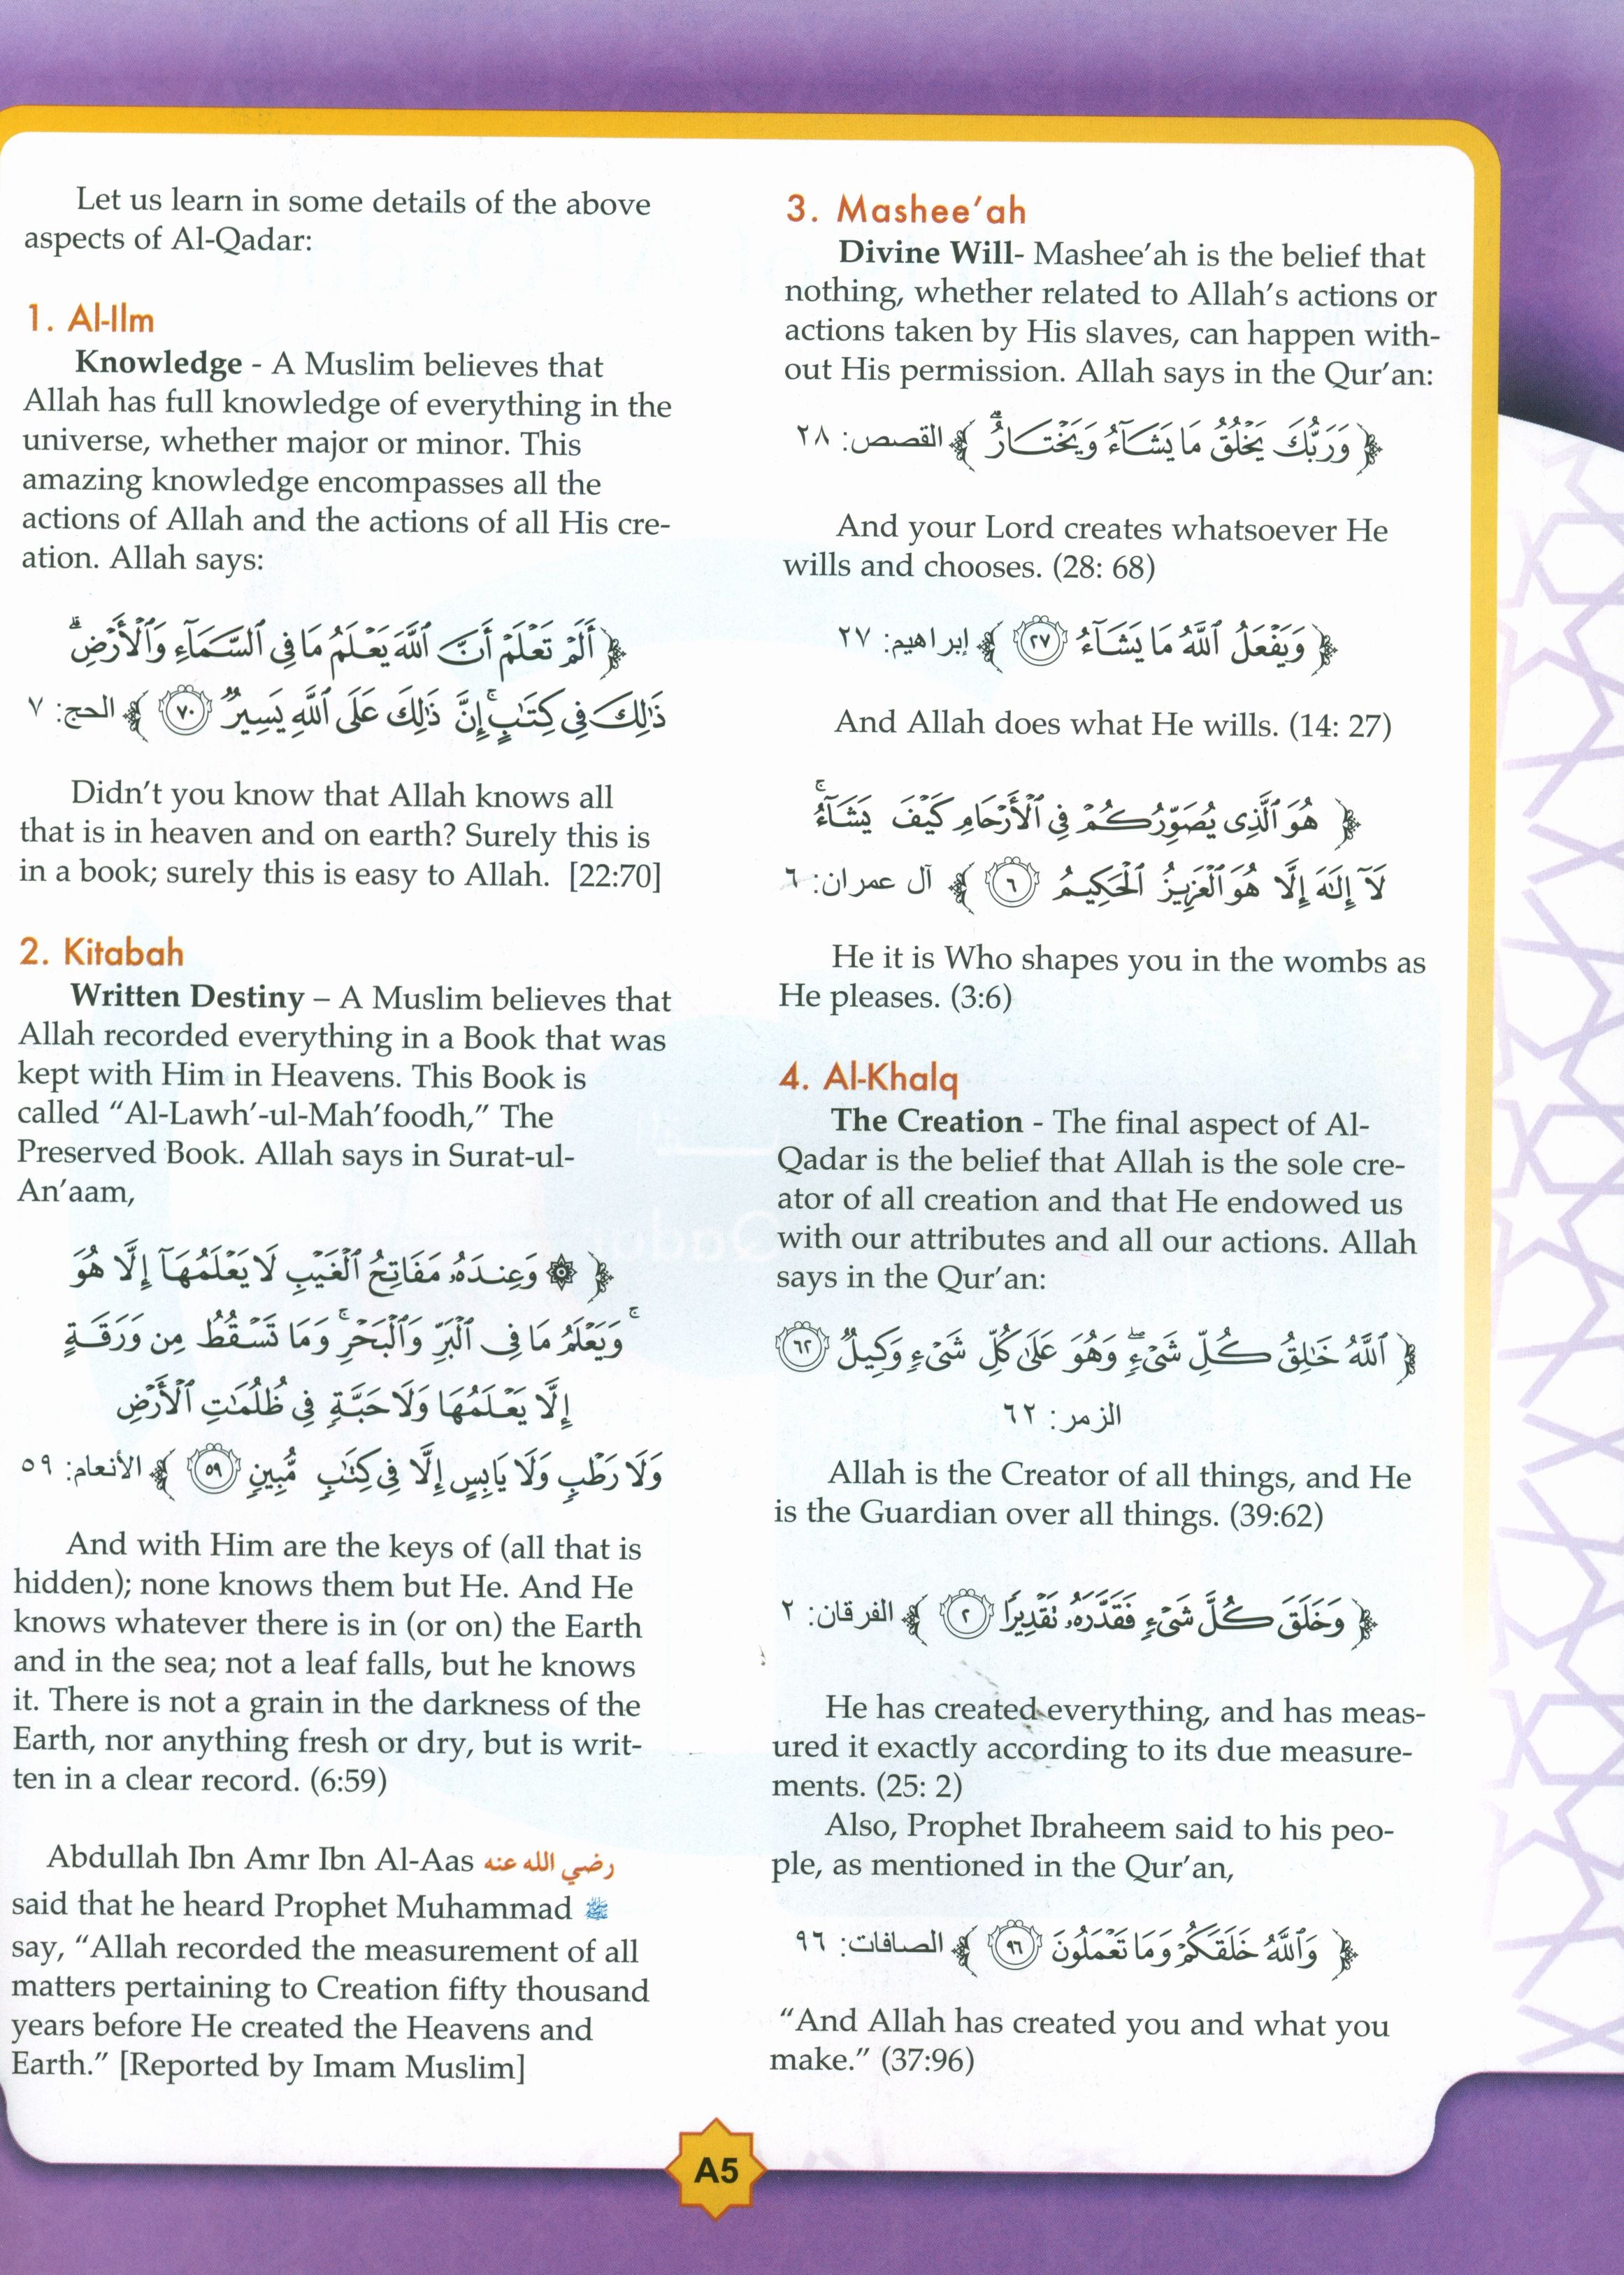 Let us learn in some details of the above
aspects of Al-Qadar:
1. Al-Ilm
Knowledge - A Muslim believes that
Allah has full knowledge of everything in the
universe, whether major or minor. This
amazing knowledge encompasses all the
actions of Allah and the actions of all His cre-
ation. Allah says:
﴿ أَلَمْ تَعْلَمْ أَنَّ ٱللَّهَ يَعْلَمُ مَا فِى ٱلسَّمَآءِ وَٱلْأَرْضِ ۗ
ذَٰلِكَ فِى كِتَٰبٍ ۚ إِنَّ ذَٰلِكَ عَلَى ٱللَّهِ يَسِيرٌ ٧٠ ﴾ الحج: ٧
Didn't you know that Allah knows all
that is in heaven and on earth? Surely this is
in a book; surely this is easy to Allah. [22:70]
2. Kitabah
Written Destiny – A Muslim believes that
Allah recorded everything in a Book that was
kept with Him in Heavens. This Book is
called “Al-Lawh’-ul-Mah’foodh,” The
Preserved Book. Allah says in Surat-ul-
An’aam,
﴿ ۞ وَعِندَهُۥ مَفَاتِحُ ٱلْغَيْبِ لَا يَعْلَمُهَآ إِلَّا هُوَ
ۚ وَيَعْلَمُ مَا فِى ٱلْبَرِّ وَٱلْبَحْرِ ۚ وَمَا تَسْقُطُ مِن وَرَقَةٍ
إِلَّا يَعْلَمُهَا وَلَا حَبَّةٍ فِى ظُلُمَٰتِ ٱلْأَرْضِ
وَلَا رَطْبٍ وَلَا يَابِسٍ إِلَّا فِى كِتَٰبٍ مُّبِينٍ ٥٩ ﴾ الأنعام: ٥٩
And with Him are the keys of (all that is
hidden); none knows them but He. And He
knows whatever there is in (or on) the Earth
and in the sea; not a leaf falls, but he knows
it. There is not a grain in the darkness of the
Earth, nor anything fresh or dry, but is writ-
ten in a clear record. (6:59)
Abdullah Ibn Amr Ibn Al-Aas رضي الله عنه
said that he heard Prophet Muhammad ﷺ
say, “Allah recorded the measurement of all
matters pertaining to Creation fifty thousand
years before He created the Heavens and
Earth.” [Reported by Imam Muslim]
3. Mashee’ah
Divine Will- Mashee’ah is the belief that
nothing, whether related to Allah’s actions or
actions taken by His slaves, can happen with-
out His permission. Allah says in the Qur’an:
﴿ وَرَبُّكَ يَخْلُقُ مَا يَشَآءُ وَيَخْتَارُ ۗ ﴾ القصص: ٢٨
And your Lord creates whatsoever He
wills and chooses. (28: 68)
﴿ وَيَفْعَلُ ٱللَّهُ مَا يَشَآءُ ٢٧ ﴾ إبراهيم: ٢٧
And Allah does what He wills. (14: 27)
﴿ هُوَ ٱلَّذِى يُصَوِّرُكُمْ فِى ٱلْأَرْحَامِ كَيْفَ يَشَآءُ ۚ
لَآ إِلَٰهَ إِلَّا هُوَ ٱلْعَزِيزُ ٱلْحَكِيمُ ٦ ﴾ آل عمران: ٦
He it is Who shapes you in the wombs as
He pleases. (3:6)
4. Al-Khalq
The Creation - The final aspect of Al-
Qadar is the belief that Allah is the sole cre-
ator of all creation and that He endowed us
with our attributes and all our actions. Allah
says in the Qur’an:
﴿ ٱللَّهُ خَٰلِقُ كُلِّ شَىْءٍ ۖ وَهُوَ عَلَىٰ كُلِّ شَىْءٍ وَكِيلٌ ٦٢
الزمر: ٦٢
Allah is the Creator of all things, and He
is the Guardian over all things. (39:62)
﴿ وَخَلَقَ كُلَّ شَىْءٍ فَقَدَّرَهُۥ تَقْدِيرًا ٢ ﴾ الفرقان: ٢
He has created everything, and has meas-
ured it exactly according to its due measure-
ments. (25: 2)
Also, Prophet Ibraheem said to his peo-
ple, as mentioned in the Qur’an,
﴿ وَٱللَّهُ خَلَقَكُمْ وَمَا تَعْمَلُونَ ٩٦ ﴾ الصافات: ٩٦
“And Allah has created you and what you
make.” (37:96)
A5